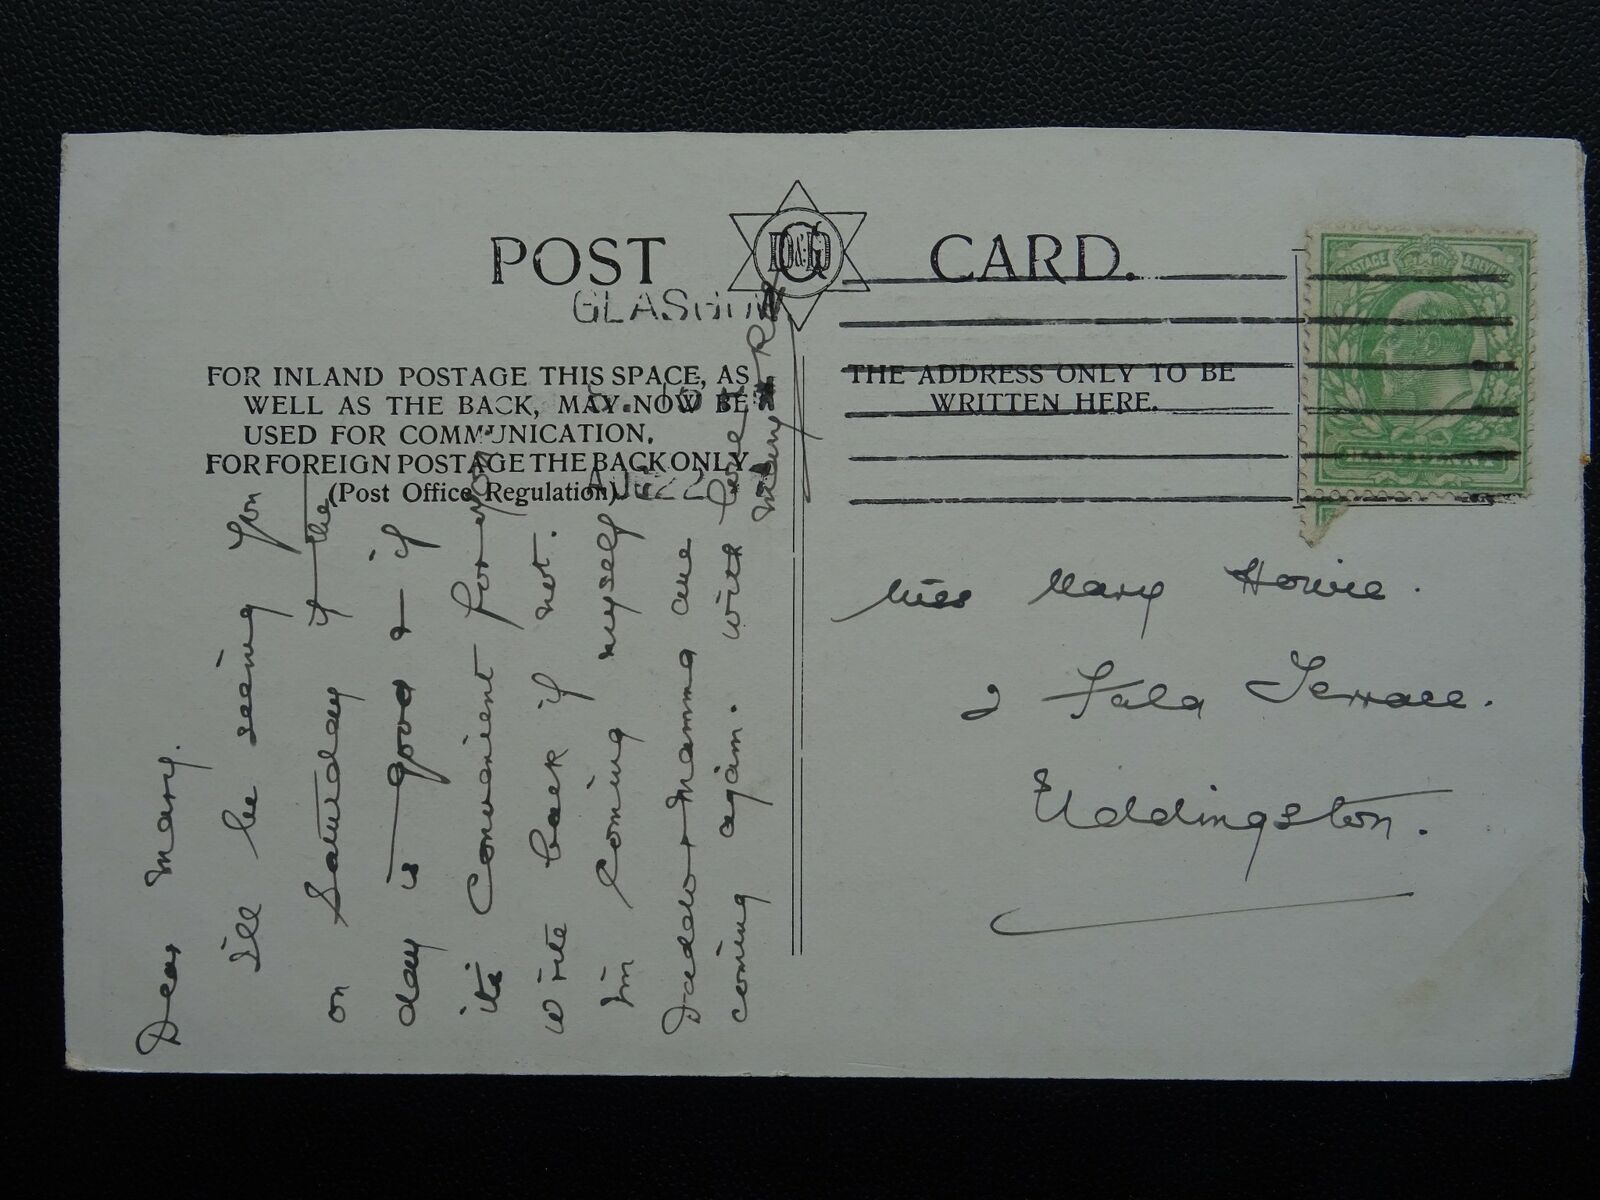 POST CARD.
D&G
GLASGOW
AUG 22
FOR INLAND POSTAGE THIS SPACE, AS
WELL AS THE BACK, MAY NOW BE
USED FOR COMMUNICATION.
FOR FOREIGN POSTAGE THE BACK ONLY
(Post Office Regulation).
THE ADDRESS ONLY TO BE
WRITTEN HERE.
Dear Mary.
I'll be seeing you
on Saturday if the
day is good & if
its Convenient for you
write back if not.
I'm Coming myself
Dadda & Mamma are
coming again. with love
Mary R
Miss Mary Howie.
2 Fala Terrace.
Uddingston.
POSTAGE
HALFPENNY